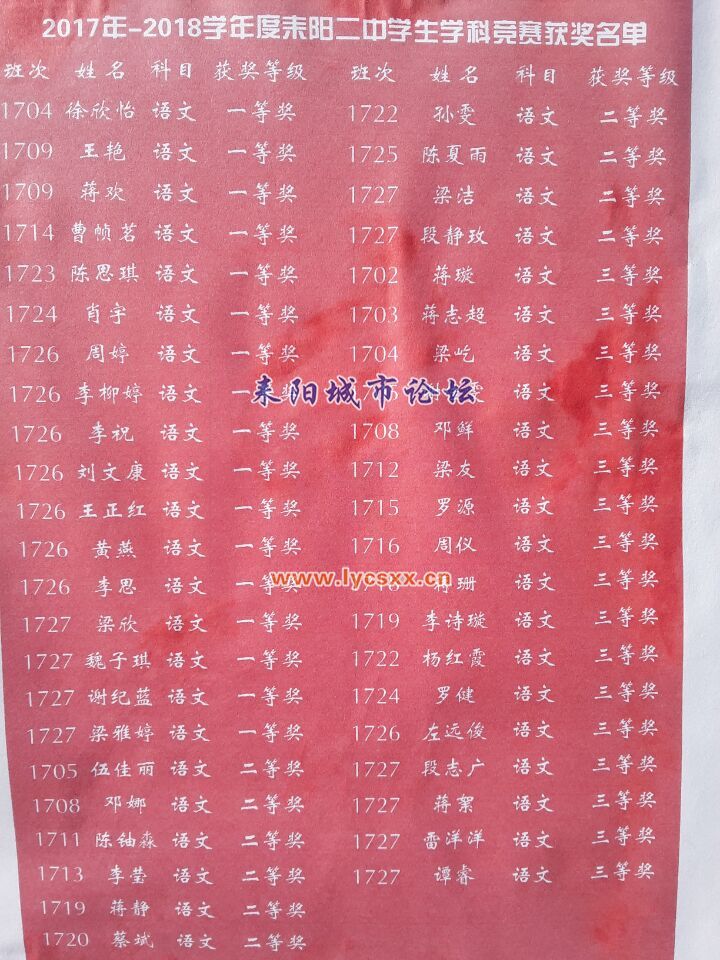 2017年-2018学年度耒阳二中学生学科竞赛获奖名单
班次 姓名 科目 获奖等级 班次 姓名 科目 获奖等级
1704 徐欣怡 语文 一等奖 1722 孙雯 语文 二等奖
1709 王艳 语文 一等奖 1725 陈夏雨 语文 二等奖
1709 蒋欢 语文 一等奖 1727 梁洁 语文 二等奖
1714 曹帧茗 语文 一等奖 1727 段静玫 语文 二等奖
1723 陈思琪 语文 一等奖 1702 蒋璇 语文 三等奖
1724 肖宇 语文 一等奖 1703 蒋志超 语文 三等奖
1726 周婷 语文 一等奖 1704 梁屹 语文 三等奖
1726 李柳婷 语文 一等奖 雯 语文 三等奖
耒阳城市论坛
1726 李祝 语文 一等奖 1708 邓鲜 语文 三等奖
1726 刘文康 语文 一等奖 1712 梁友 语文 三等奖
1726 王正红 语文 一等奖 1715 罗源 语文 三等奖
1726 黄燕 语文 一等奖 1716 周仪 语文 三等奖
www.lycsxx.cn
1726 李思 语文 一等奖 蒋珊 语文 三等奖
1727 梁欣 语文 一等奖 1719 李诗璇 语文 三等奖
1727 魏子琪 语文 一等奖 1722 杨红霞 语文 三等奖
1727 谢纪蓝 语文 一等奖 1724 罗健 语文 三等奖
1727 梁雅婷 语文 一等奖 1726 左远俊 语文 三等奖
1705 伍佳丽 语文 二等奖 1727 段志广 语文 三等奖
1708 邓娜 语文 二等奖 1727 蒋絮 语文 三等奖
1711 陈铀淼 语文 二等奖 1727 雷洋洋 语文 三等奖
1713 李莹 语文 二等奖 1727 谭睿 语文 三等奖
1719 蒋静 语文 二等奖
1720 蔡斌 语文 二等奖